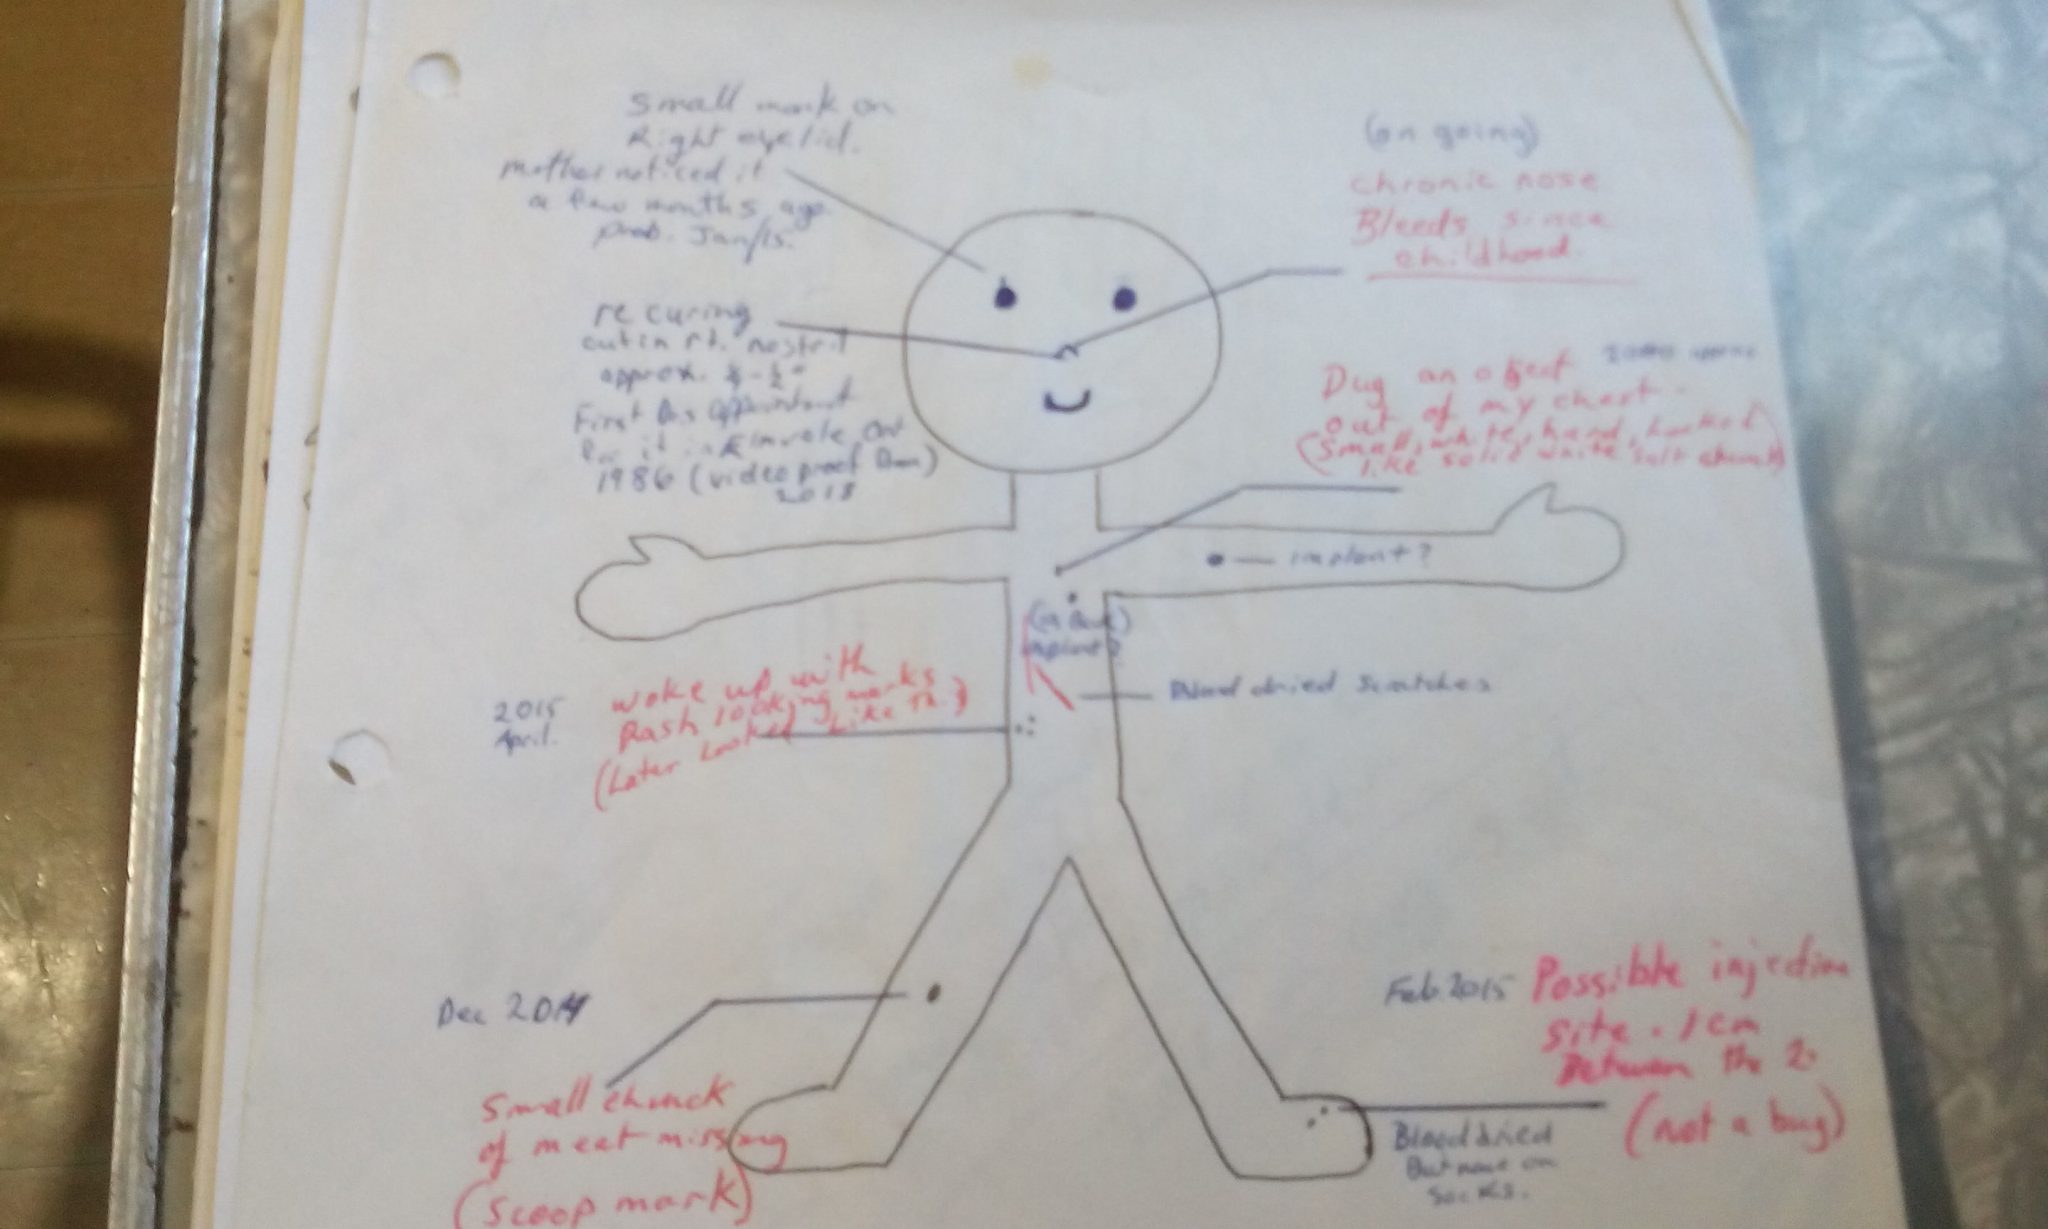 small mark on
Right eyelid.
mother noticed it
a few months ago
prob. Jan/15.
(on going)
chronic nose
Bleeds since
childhood
re curing
cut in rt. nostril
approx. ¼ - ½"
First Drs appointment
for it in Elmvale, Ont
1986 (video proof
2018
Dug an object
out of my chest.
(small, white, hard, looked
like solid white salt chunk)
implant?
implant?
Blood dried scratches
2015
April.
woke up with
Rash looking marks
(Later Looked Like
Dec 2014
small chunck
of meat missing
(scoop mark)
Feb 2015 Possible injection
site. 1 cm
Between the 2.
(not a bug)
Blood dried
But none on
socks.